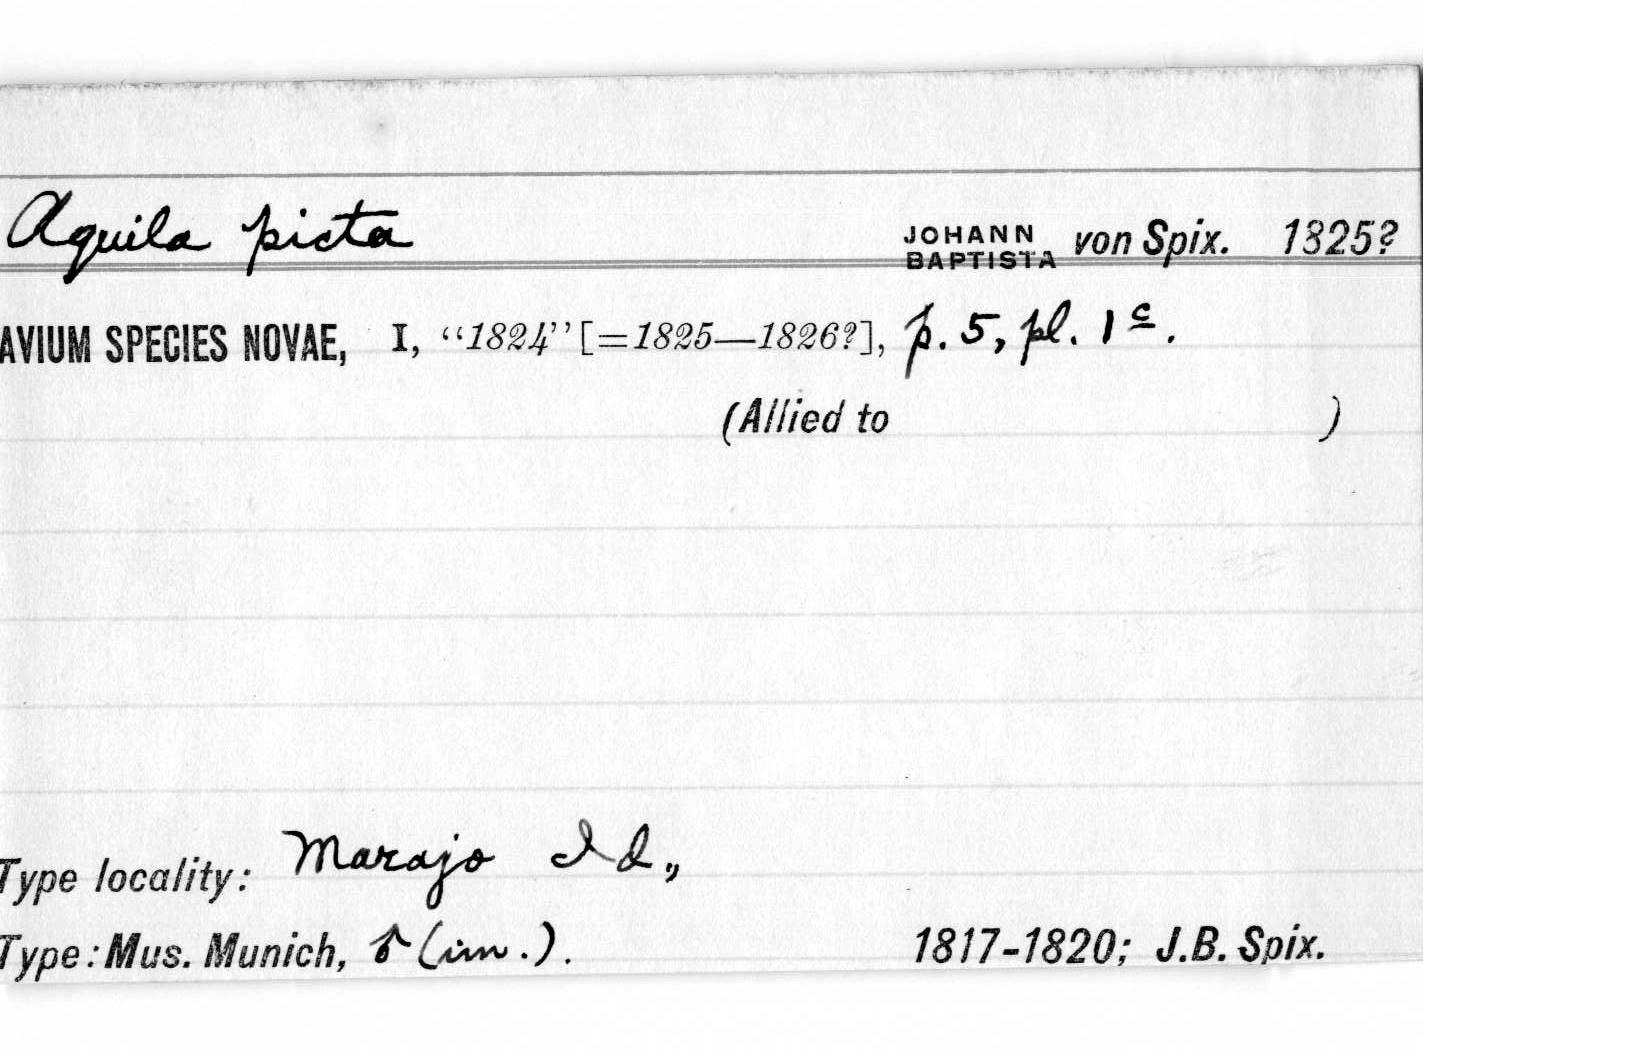 Aquila picta JOHANN BAPTISTA von Spix. 1825?
AVIUM SPECIES NOVAE, I, “1824” [=1825—1826?], p. 5, pl. 1c.
(Allied to )
Type locality: Marajo Id.,
Type: Mus. Munich, ♂ (im.). 1817-1820; J.B. Spix.